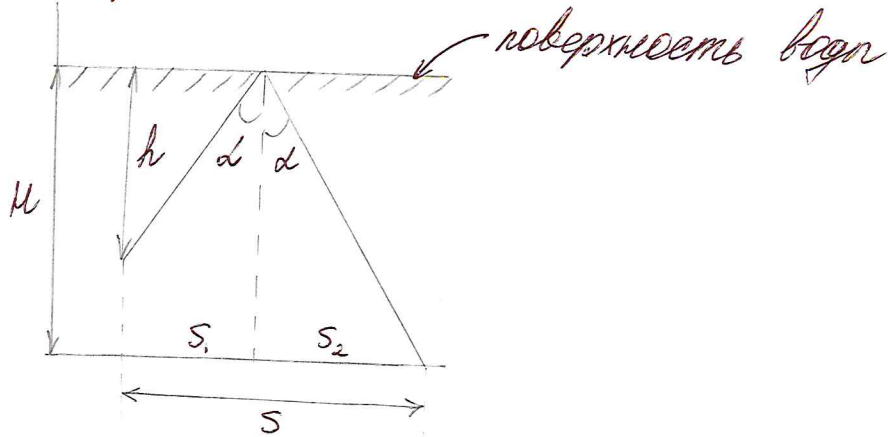 поверхность воды
h
α α
H
S₁ S₂
S